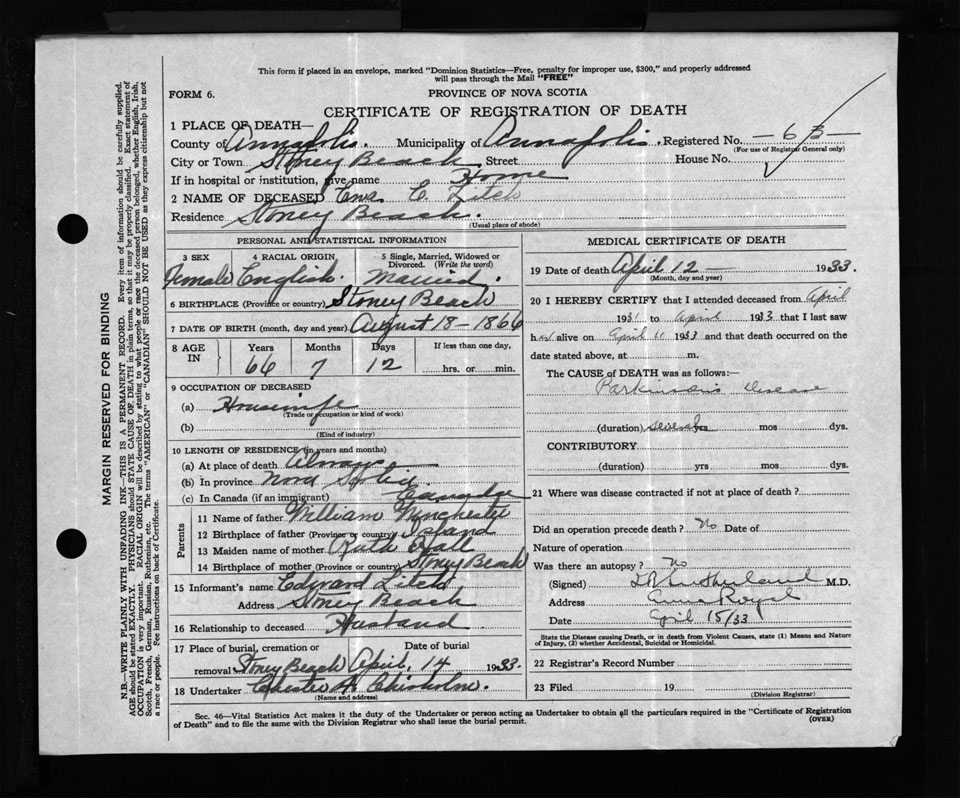 This form if placed in an envelope, marked "Dominion Statistics—Free, penalty for improper use, $300," and properly addressed
will pass through the Mail "FREE"
FORM 6.
PROVINCE OF NOVA SCOTIA
CERTIFICATE OF REGISTRATION OF DEATH
1 PLACE OF DEATH—
County of Annapolis. Municipality of Annapolis. Registered No. —63—
(For use of Registrar General only)
City or Town Stoney Beach Street House No.
If in hospital or institution, give name Home
2 NAME OF DECEASED C. Litch
Residence Stoney Beach.
(Usual place of abode)
PERSONAL AND STATISTICAL INFORMATION
3 SEX 4 RACIAL ORIGIN 5 Single, Married, Widowed or
Divorced. (Write the word)
Female English. Married.
6 BIRTHPLACE (Province or country) Stoney Beach
7 DATE OF BIRTH (month, day and year) August 18—1866
8 AGE IN Years Months Days If less than one day,
66 7 12 hrs. or min.
9 OCCUPATION OF DECEASED
(a) Housewife
(Trade or occupation or kind of work)
(b)
(Kind of industry)
10 LENGTH OF RESIDENCE (in years and months)
(a) At place of death Always
(b) In province Nova Scotia
(c) In Canada (if an immigrant) Canada
Parents
11 Name of father William Winchester
12 Birthplace of father (Province or country)
13 Maiden name of mother Ruth Hall
14 Birthplace of mother (Province or country) Stoney Beach
15 Informant's name Edward Litch
Address Stoney Beach
16 Relationship to deceased Husband
17 Place of burial, cremation or Date of burial
removal Stoney Beach April, 14 1933.
18 Undertaker Chester A Chisholm.
(Name and address)
MEDICAL CERTIFICATE OF DEATH
19 Date of death April 12 — 1933.
(Month, day and year)
20 I HEREBY CERTIFY that I attended deceased from April
1931 to April 1933 that I last saw
her alive on April 11 1933 and that death occurred on the
date stated above, at m.
The CAUSE of DEATH was as follows:—
Parkinson's disease
(duration) several yrs mos dys.
CONTRIBUTORY
(duration) yrs mos dys.
21 Where was disease contracted if not at place of death?
Did an operation precede death? No Date of
Nature of operation
Was there an autopsy? No
(Signed) M.D.
Address Anna Royal
Date April 15/33
State the Disease causing Death, or in death from Violent Causes, state (1) Means and Nature
of Injury, (2) whether Accidental, Suicidal or Homicidal.
22 Registrar's Record Number
23 Filed 19
(Division Registrar)
Sec. 46—Vital Statistics Act makes it the duty of the Undertaker or person acting as Undertaker to obtain all the particulars required in the "Certificate of Registration
of Death" and to file the same with the Division Registrar who shall issue the burial permit.
(OVER)
MARGIN RESERVED FOR BINDING
N.B.—WRITE PLAINLY WITH UNFADING INK—THIS IS A PERMANENT RECORD. Every item of information should be carefully supplied.
AGE should be stated EXACTLY. PHYSICIANS should STATE CAUSE OF DEATH in plain terms, so that it may be properly classified. Exact statement of
OCCUPATION is very important. RACIAL ORIGIN will be described by stating to what people or race the deceased person belonged, whether English, Irish,
Scotch, French, German, Russian, Ruthenian, etc. The terms "AMERICAN" or "CANADIAN" SHOULD NOT BE USED as they express citizenship but not
a race or people. Fee instructions on back of Certificate.